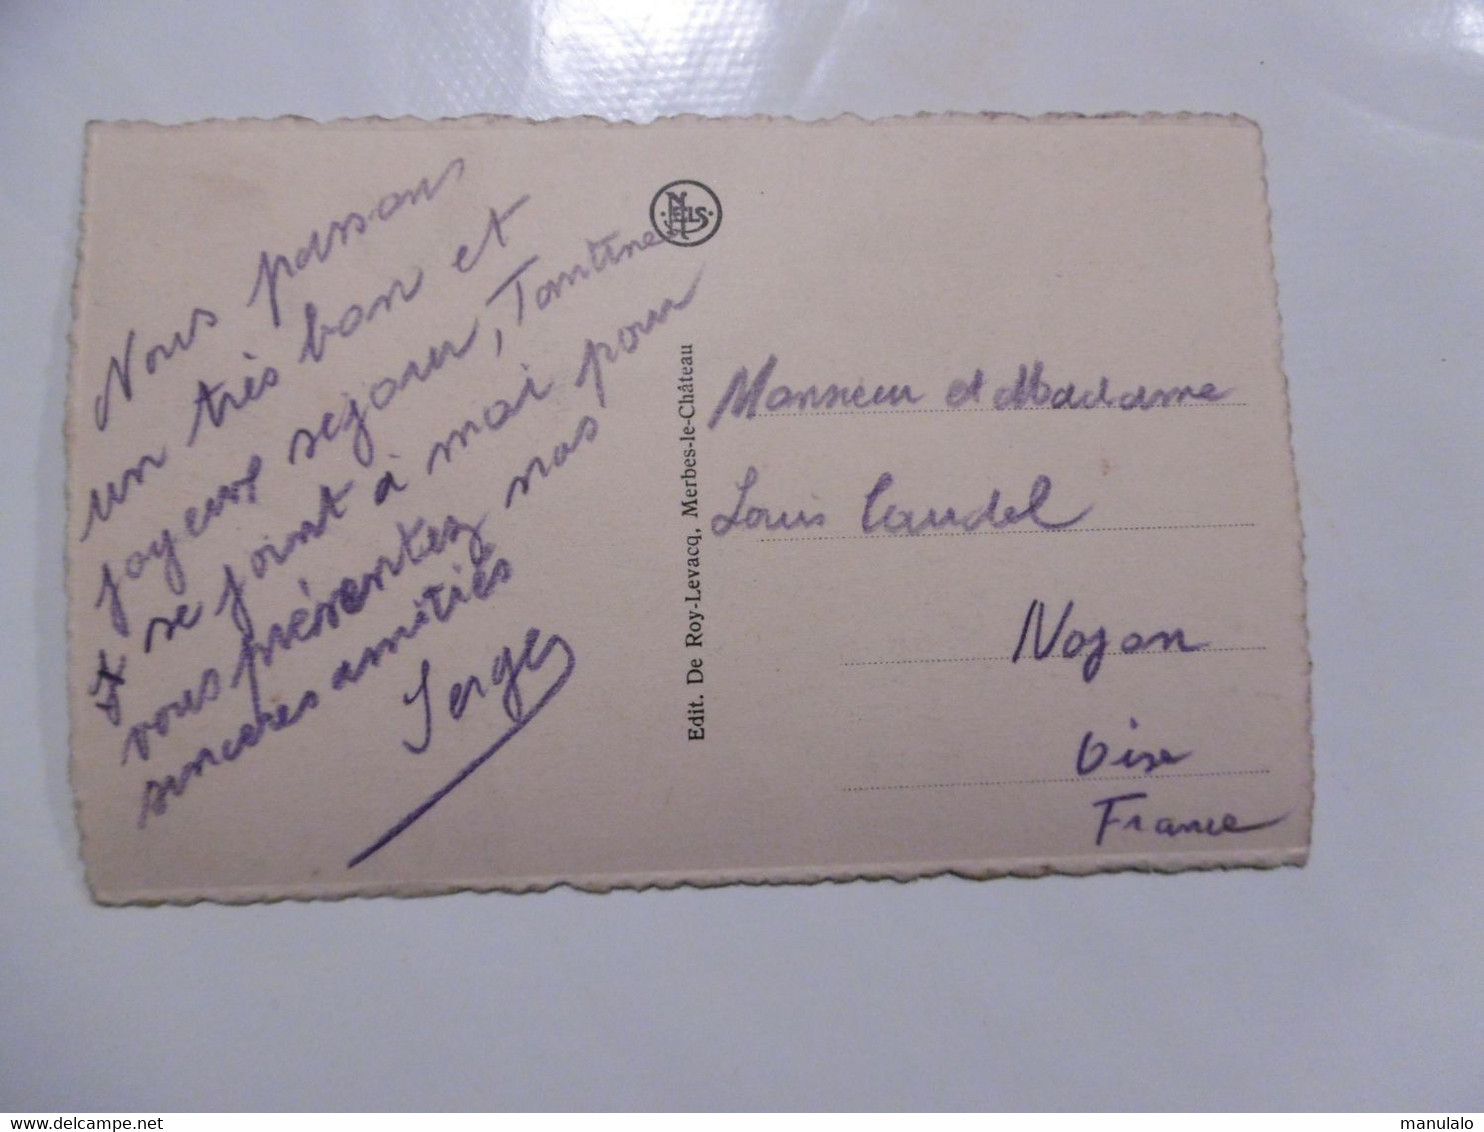 Nous passons
un très bon et
joyeux sejour, Tantine
se joint à moi pour
vous présentez nos
sinceres amitiés
Serge
NELS
Edit. De Roy-Levacq, Merbes-le-Château
Monsieur et Madame
Louis Caudel
Noyon
Oise
France
www.delcampe.net
manulalo